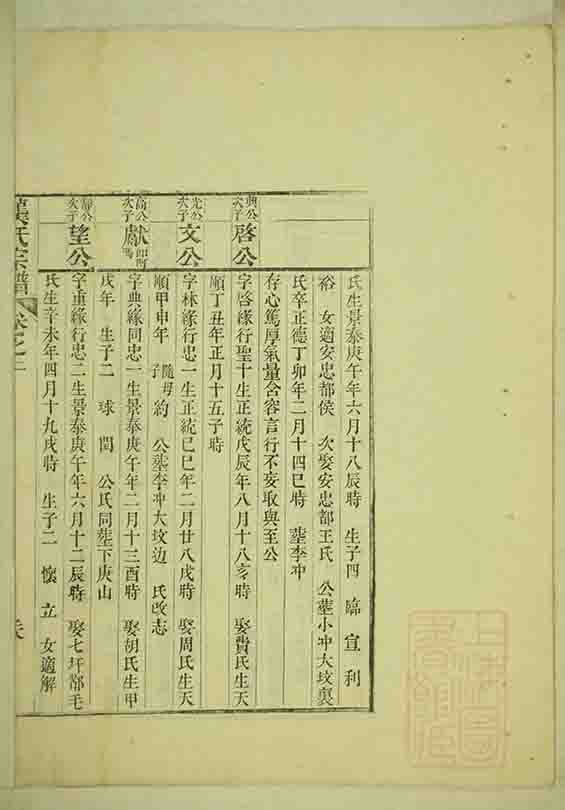 氏生景泰庚午年六月十八辰時 生子四 臨 宣 利
裕 女適安忠都侯 次娶安忠都王氏 公塟小冲大坟裏
氏卒正德丁卯年二月十四巳時 塟李冲
存心篤厚氣量含容言行不妄取與至公
典公次子 啓公
字啓緣行聖十生正統戊辰年八月十八亥時 娶費氏生天
順丁丑年正月十五子時
光公次子 文公
字林緣行忠一生正統巳巳年二月廿八戌時 娶周氏生天
順甲申年 隨母子約 公塟李冲大坟边 氏改志
高公次子 獻
字典緣同忠一生景泰庚午年二月十三酉時 娶胡氏生甲
戌年 生子二 球 閏 公氏同塟下庚山
次子 望公
字重緣行忠二生景泰庚午年六月十二辰時 娶七坪鄒毛
氏生辛未年四月十九戌時 生子二 懷 立 女適解
氏宗譜